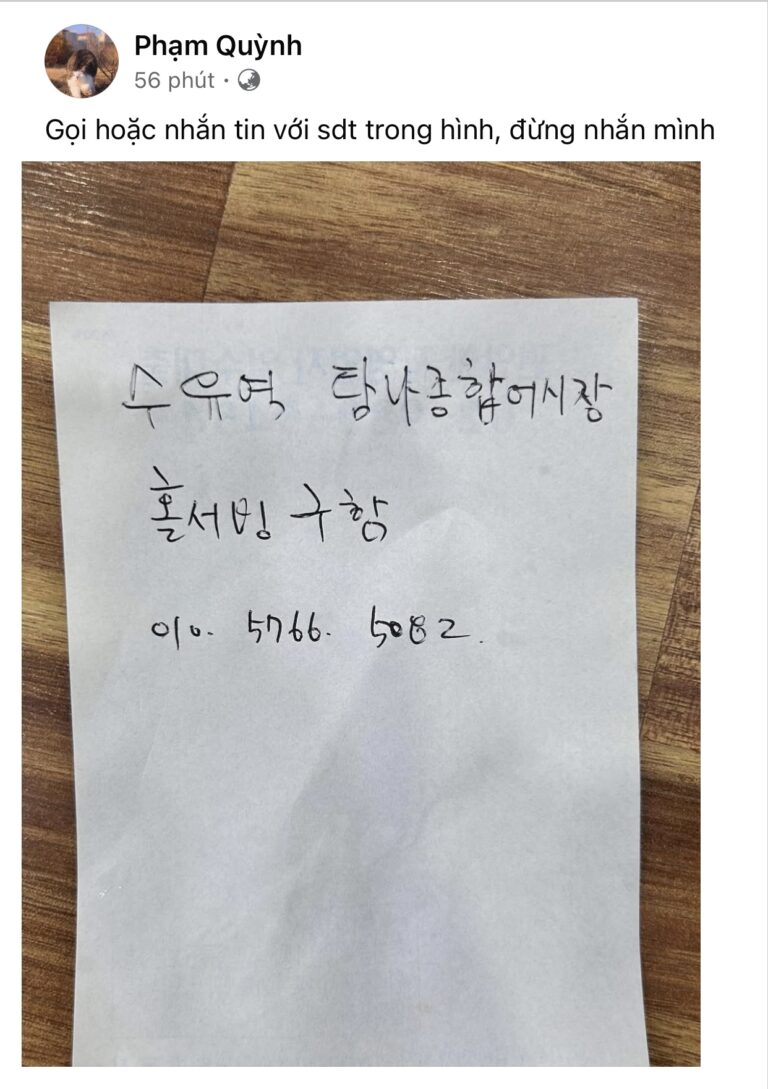 Phạm Quỳnh
56 phút ·
Gọi hoặc nhắn tin với sdt trong hình, đừng nhắn mình
수유역 탐나종합어시장
홀서빙 구함
010. 5766. 5082.